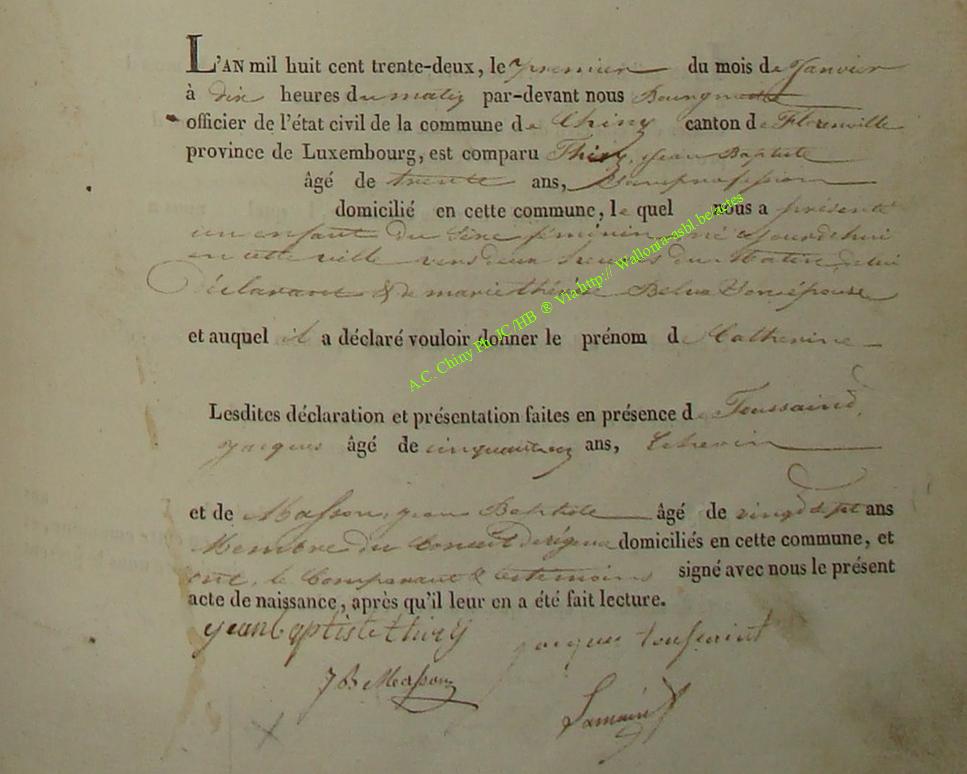 L'AN mil huit cent trente-deux, le premier du mois de Janvier
à dix heures du matin par-devant nous Bourgmestre
officier de l'état civil de la commune de Chiny canton de Florenville
province de Luxembourg, est comparu Thiry, Jean Baptiste
âgé de trente ans, sans profession
domicilié en cette commune, le quel nous a présenté
un enfant du sexe féminin né aujourd'hui
en cette ville vers deux heures du Matin de lui
déclarant & de marie thérèse son épouse
et auquel il a déclaré vouloir donner le prénom de Catherine
Lesdites déclaration et présentation faites en présence de Toussaind,
Jacques âgé de ans, Echevin
et de Masson, Jean Baptiste âgé de vingd sept ans
Membre du Conseil domiciliés en cette commune, et
ont, le Comparant & les temoins signé avec nous le présent
acte de naissance, après qu'il leur en a été fait lecture.
jean baptiste thiry jacques toussaint
J B Masson
A.C. Chiny Ph JC/HB ® Via http:// Wallonia-asbl.be/actes